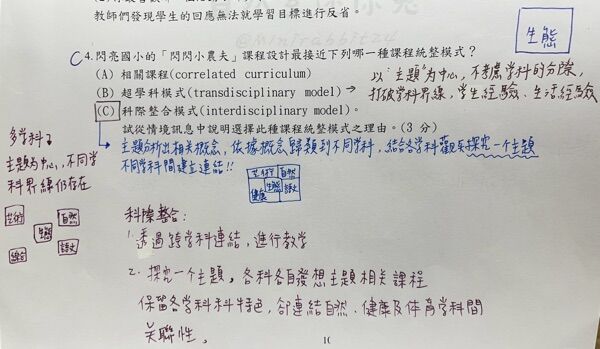 教師們發現學生的回應無法就學習目標進行反省。
C4.閃亮國小的「閃閃小農夫」課程設計最接近下列哪一種課程統整模式?
(A) 相關課程(correlated curriculum)
(B) 超學科模式(transdisciplinary model)
(C) 科際整合模式(interdisciplinary model)。
試從情境訊息中說明選擇此種課程統整模式之理由。(3 分)
生態
以"主題"為中心,不考慮學科的分際,
打破學科界線,學生經驗、生活經驗
主題分析出相關概念,依據概念歸類到不同學科,結合各學科觀點探究一個主題
不同學科間建立連結!!
藝術 自然
生態
健體 語文
多學科:
主題為中心,不同學
科界線仍存在
藝術 自然
生態
綜合 語文
科際整合:
1.透過跨學科連結,進行教學
2.探究一個主題,各科各自發想主題相關課程
保留各學科科特色,卻連結自然、健康及體育學科間
關聯性。
10